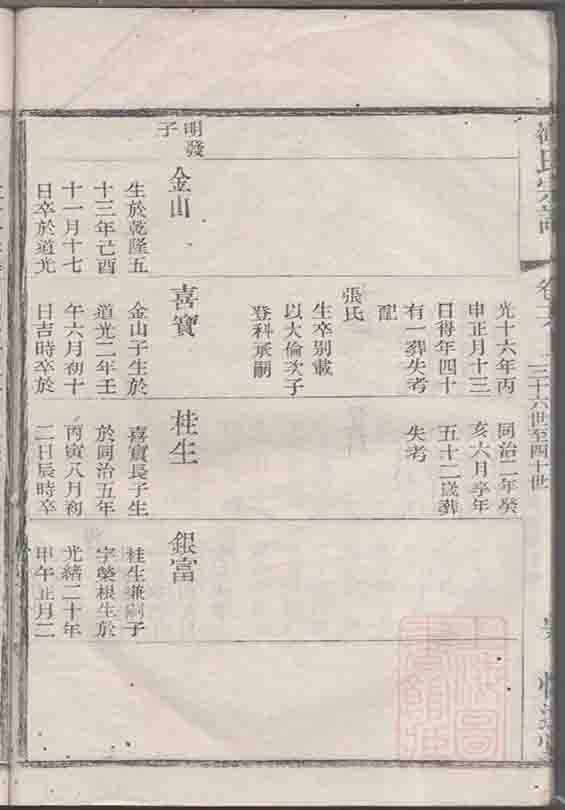 氏宗譜
三十六世至四十世
明發
子
金山
生於乾隆五
十三年己酉
十一月十七
日卒於道光
光十六年丙
申正月十三
日得年四十
有一葬失考
配
張氏
生卒別載
以大倫次子
登科承嗣
喜寶
金山子生於
道光二年壬
午六月初十
日吉時卒於
同治二年癸
亥六月享年
五十二歲葬
失考
桂生
喜寶長子生
於同治五年
丙寅八月初
二日辰時卒
銀富
桂生兼嗣子
字榮根生於
光緒二十年
甲午正月二
上海圖
書館藏